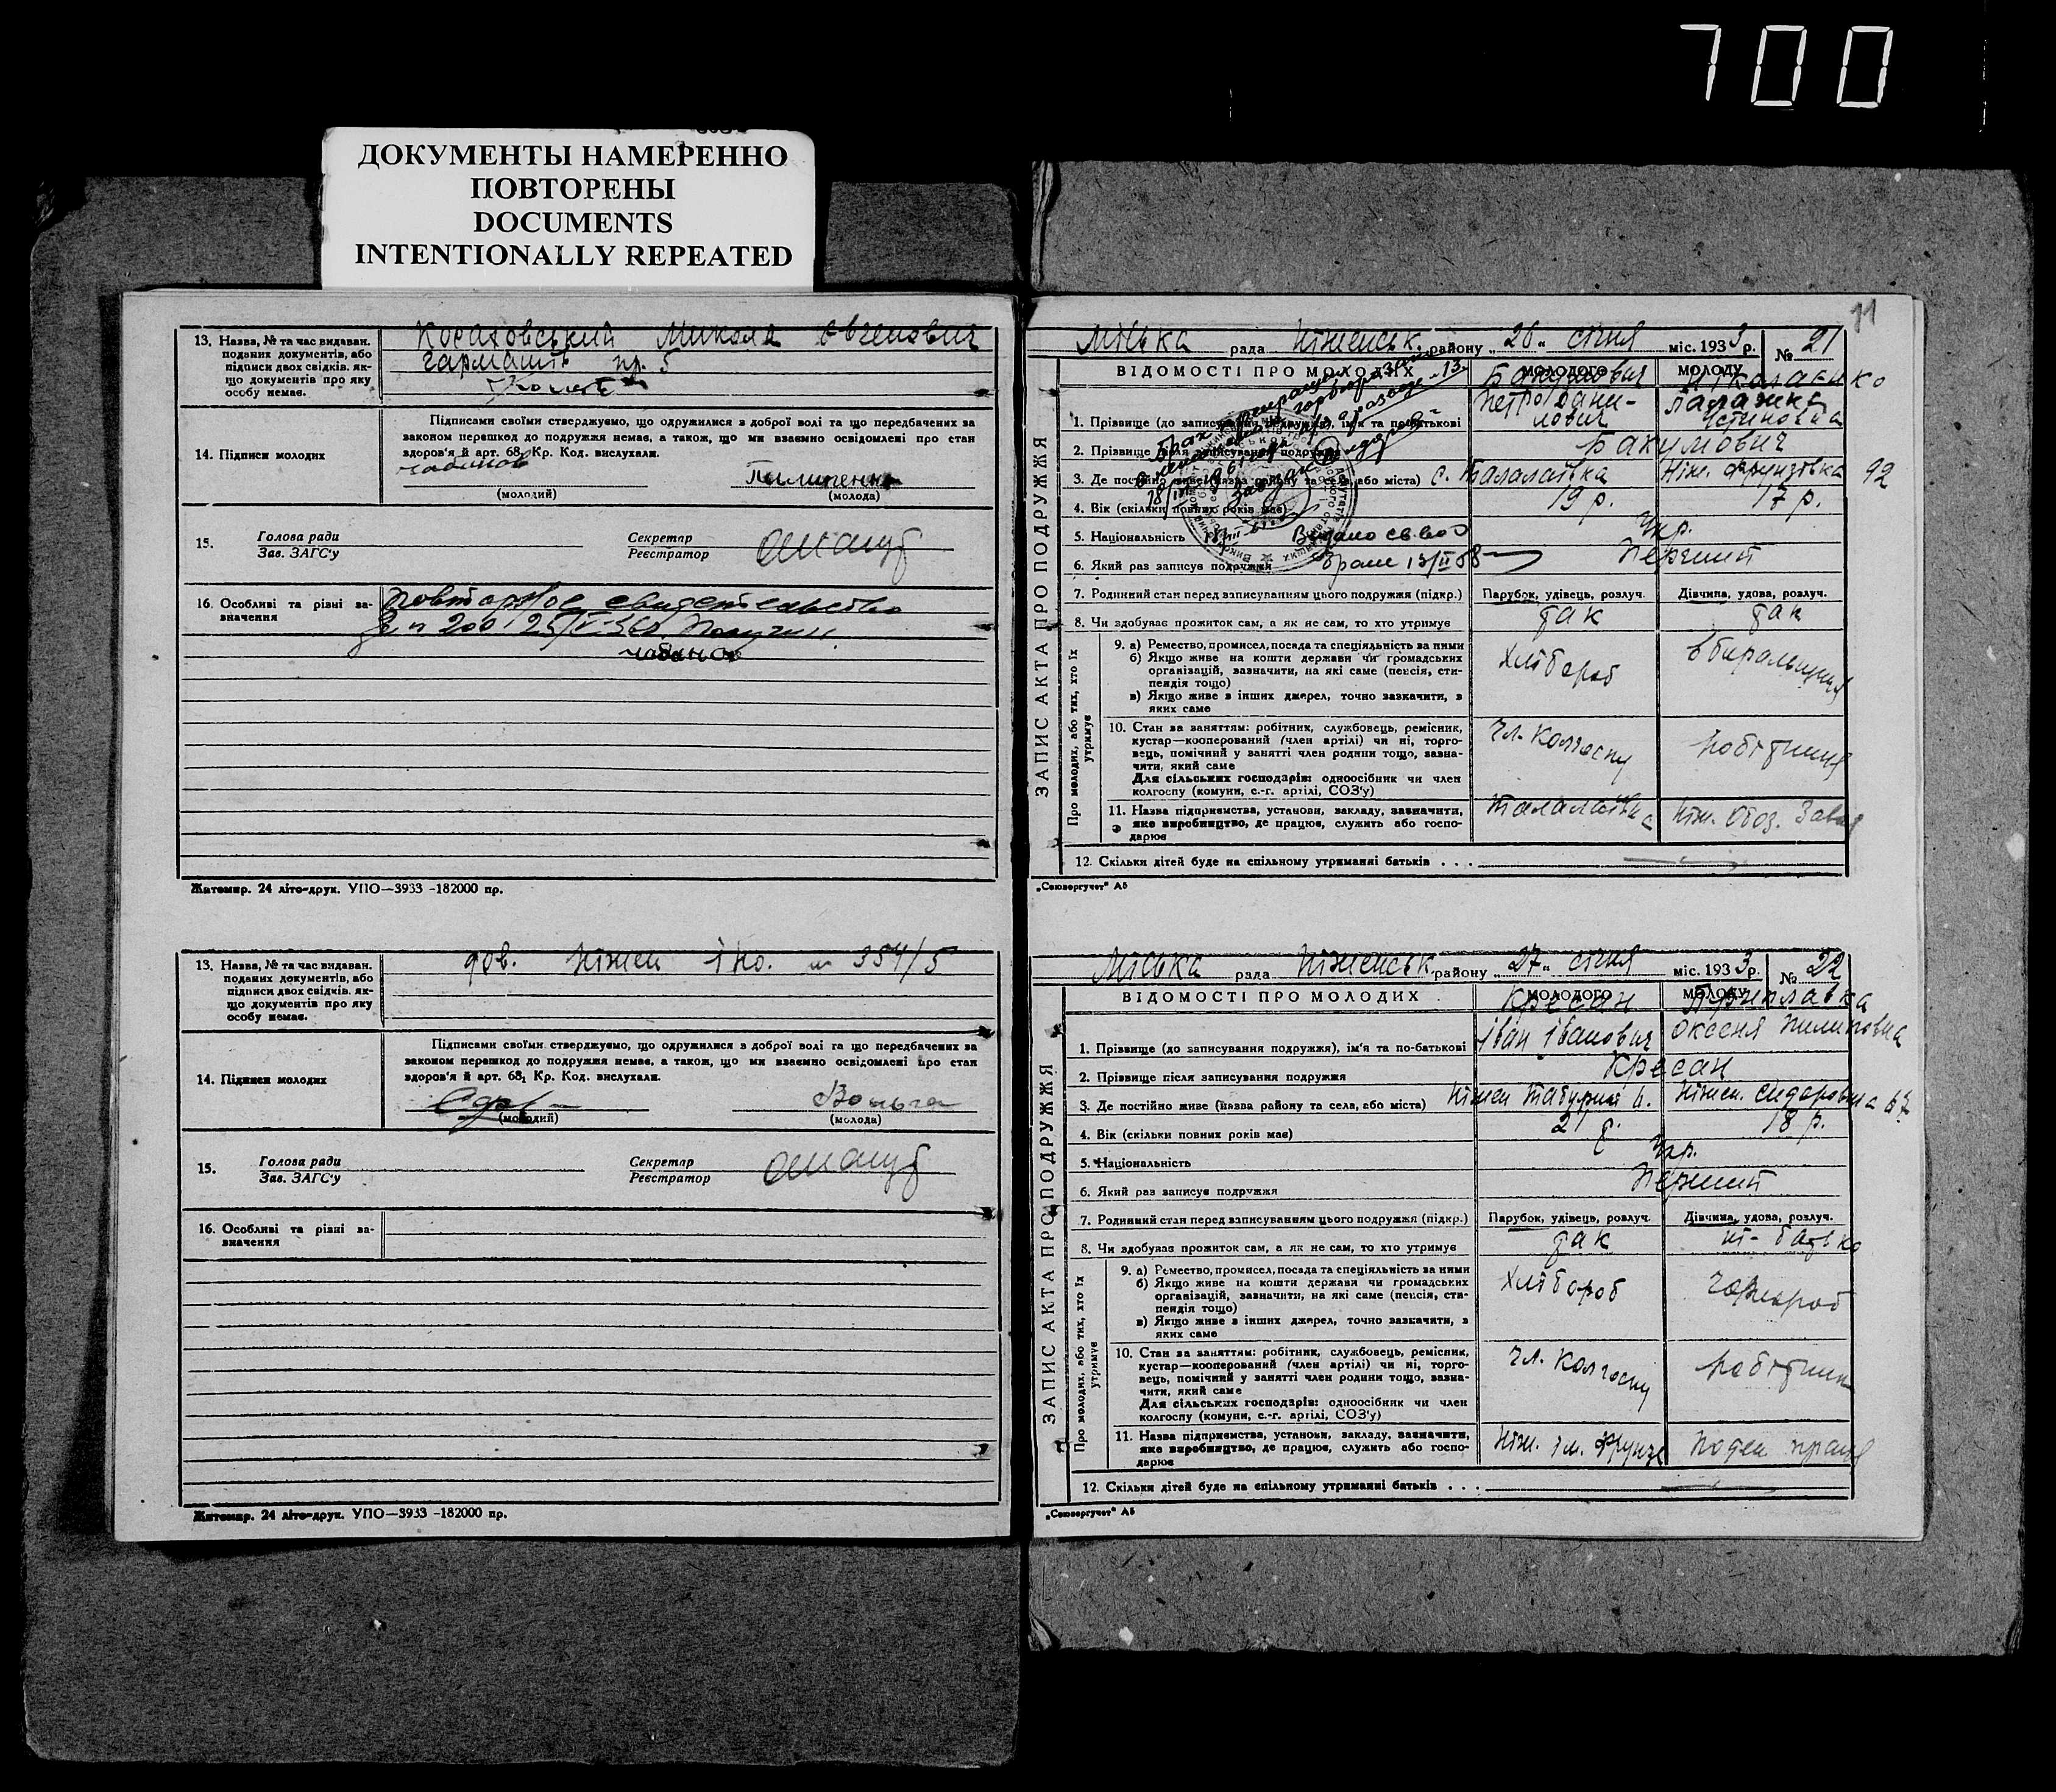 700
ДОКУМЕНТЫ НАМЕРЕННО
ПОВТОРЕНЫ
DOCUMENTS
INTENTIONALLY REPEATED
13. Назва, № та час видаван.
поданих документів, або
підписи двох свідків, як-
що документів про яку
особу немає.
Микола
пр. 5
14. Підписи молодих
Підписами своїми стверджуємо, що одружилися з доброї волі та що передбачених за
законом перешкод до подружжя немає, а також, що ми взаємно освідомлені про стан
здоров'я й арт. 68, Кр. Код. вислухали.
(молодий)
Пилипенко
(молода)
15.
Голова ради
Зав. ЗАГС'у
Секретар
Реєстратор
16. Особливі та різні за-
значення
Повторное свидетельство
Житомир. 24 літо-друк. УПО—3933 -182000 пр.
13. Назва, № та час видаван.
поданих документів, або
підписи двох свідків, як-
що документів про яку
особу немає.
дов. Ніжен № 354/5
14. Підписи молодих
Підписами своїми стверджуємо, що одружилися з доброї волі та що передбачених за
законом перешкод до подружжя немає, а також, що ми взаємно освідомлені про стан
здоров'я й арт. 68, Кр. Код. вислухали.
(молодий)
(молода)
15.
Голова ради
Зав. ЗАГС'у
Секретар
Реєстратор
16. Особливі та різні за-
значення
Житомир. 24 літо-друк. УПО—3933 -182000 пр.
11
Міська рада Ніженськ. району „26" січня міс. 1933 р. № 21
ЗАПИС АКТА ПРО ПОДРУЖЖЯ
ВІДОМОСТІ ПРО МОЛОДИХ
МОЛОДОГО
МОЛОДУ
1. Прізвище (до записування подружжя), ім'я та по-батькові
Петро Дани-
лович
2. Прізвище після записування подружжя
Бакумович
3. Де постійно живе (назва району та села, або міста) с. Талалаївка
92
4. Вік (скільки повних років має)
19 р.
17 р.
5. Національність
Укр.
Видано св-во о
6. Який раз записує подружжя
браке 13/II 68
Перший
7. Родинний стан перед записуванням цього подружжя (підкр.)
Парубок, удівець, розлуч.
Дівчина, удова, розлуч.
8. Чи здобував прожиток сам, а як не сам, то хто утримує
так
так
Про молодих, або тих, хто їх утримує
9. а) Ремество, промисел, посада та спеціяльність за ними
б) Якщо живе на кошти держави чи громадських
організацій, зазначити, на які саме (пенсія, сти-
пендія тощо)
в) Якщо живе в інших джерел, точно зазначити, в
яких саме
хлібороб
10. Стан за заняттям: робітник, службовець, ремісник,
кустар—кооперований (член артілі) чи ні, торго-
вець, помічний у занятті член родини тощо, зазна-
чити, який саме
Для сільських господарів: одноосібник чи член
колгоспу (комуни, с.-г. артілі, СОЗ'у)
чл. колгоспу
робітниця
11. Назва підприємства, установи, закладу, зазначити,
яке виробництво, де працює, служить або госпо-
дарює
Талалаївка
Ніж. Обоз. Завод
12. Скільки дітей буде на спільному утриманні батьків . . .
„Союзоргучет" А5
Міська рада Ніженськ. району „27" січня міс. 1933 р. № 22
ЗАПИС АКТА ПРО ПОДРУЖЖЯ
ВІДОМОСТІ ПРО МОЛОДИХ
МОЛОДОГО
МОЛОДУ
Кресан
1. Прізвище (до записування подружжя), ім'я та по-батькові
Іван Іванович
Оксеня Пилиповна
2. Прізвище після записування подружжя
Кресан
3. Де постійно живе (назва району та села, або міста)
4. Вік (скільки повних років має)
21 р.
18 р.
5. Національність
Укр.
6. Який раз записує подружжя
Перший
7. Родинний стан перед записуванням цього подружжя (підкр.)
Парубок, удівець, розлуч.
Дівчина, удова, розлуч.
8. Чи здобував прожиток сам, а як не сам, то хто утримує
так
ні - батько
Про молодих, або тих, хто їх утримує
9. а) Ремество, промисел, посада та спеціяльність за ними
б) Якщо живе на кошти держави чи громадських
організацій, зазначити, на які саме (пенсія, сти-
пендія тощо)
в) Якщо живе в інших джерел, точно зазначити, в
яких саме
хлібороб
чорнороб
10. Стан за заняттям: робітник, службовець, ремісник,
кустар—кооперований (член артілі) чи ні, торго-
вець, помічний у занятті член родини тощо, зазна-
чити, який саме
Для сільських господарів: одноосібник чи член
колгоспу (комуни, с.-г. артілі, СОЗ'у)
чл. колгоспу
робітник
11. Назва підприємства, установи, закладу, зазначити,
яке виробництво, де працює, служить або госпо-
дарює
Ніж. ім. Фрунзе
поден праця
12. Скільки дітей буде на спільному утриманні батьків . . .
„Союзоргучет" А5